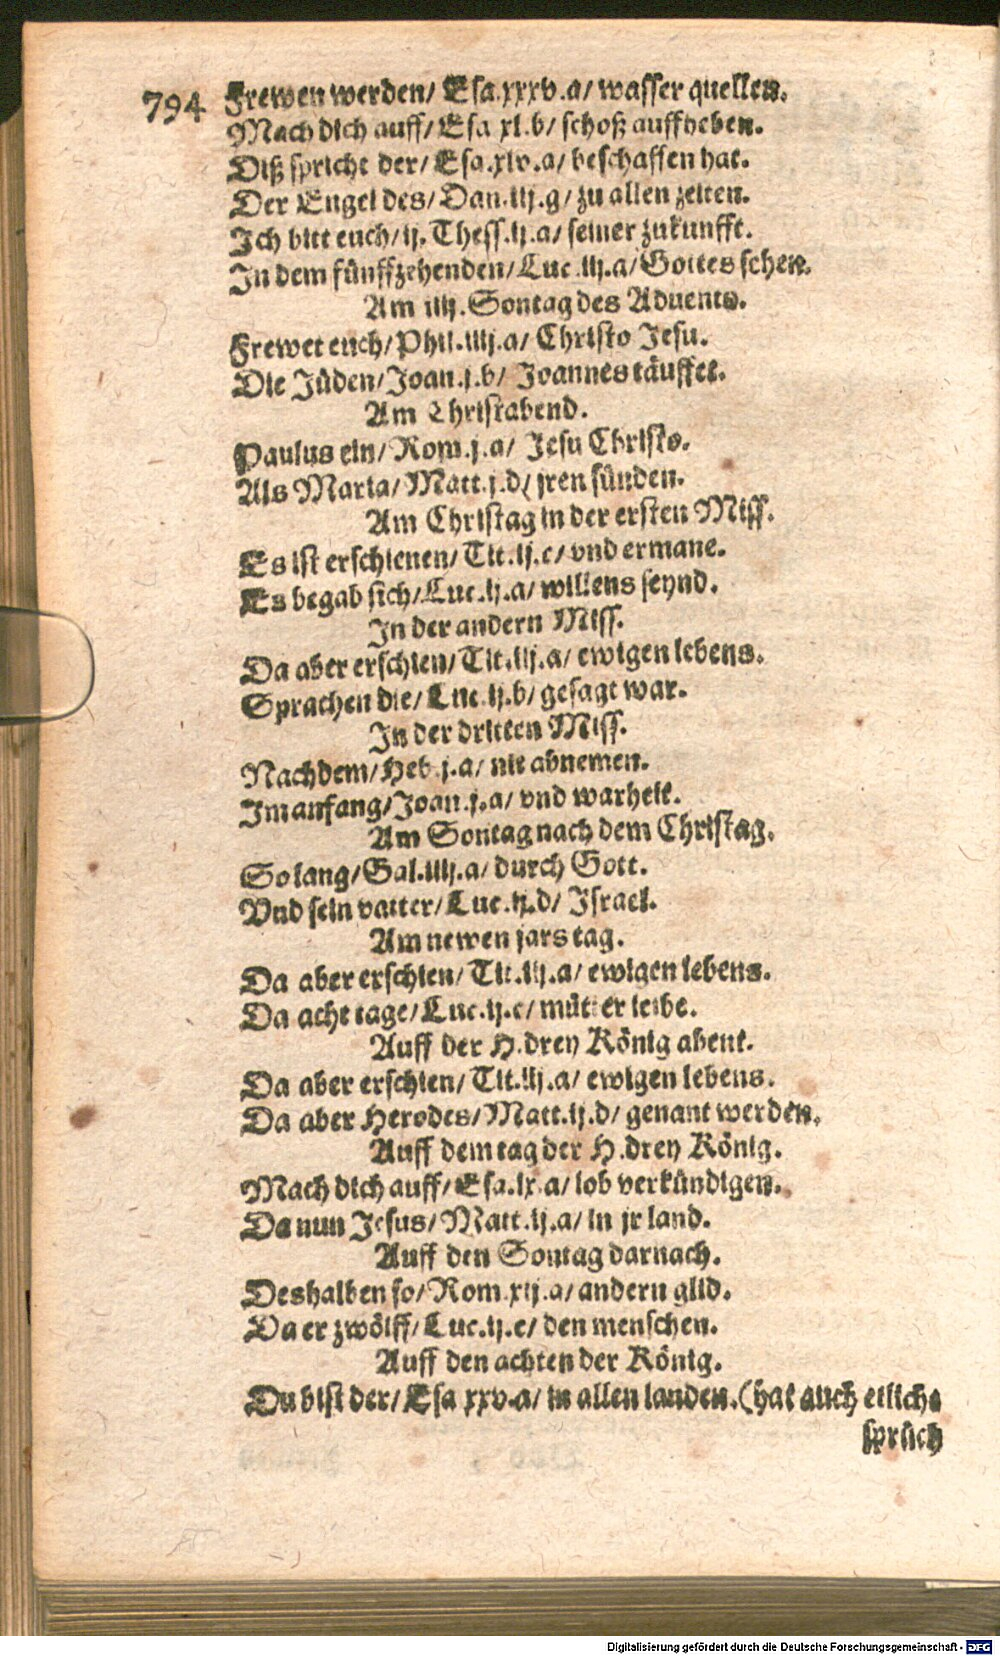 794 Frewen werden/ Esa.xxxv.a/ wasser quellen.
Mach dich auff/ Esa xl.b/ schoß auffheben.
Diß spricht der/ Esa.xlv.a/ beschaffen hat.
Der Engel des/ Dan.iij.g/ zu allen zeiten.
Ich bitt euch/ ij. Thess.ij.a/ seiner zukunfft.
In dem fünffzehenden/ Luc.iij.a/ Gottes sehen.
Am iiij. Sontag des Aduents.
Frewet euch/ Phil.iiij.a/ Christo Jesu.
Die Jüden/ Joan.j.b/ Joannes täuffet.
Am Christabend.
Paulus ein/ Rom.j.a/ Jesu Christo.
Als Maria/ Matt.j.d/ jren sünden.
Am Christag in der ersten Miss.
Es ist erschienen/ Tit.ij.c/ vnd ermane.
Es begab sich/ Luc.ij.a/ willens seynd.
In der andern Miss.
Da aber erschien/ Tit.iij.a/ ewigen lebens.
Sprachen die/ Luc.ij.b/ gesagt war.
In der dritten Miss.
Nachdem/ Heb.j.a/ nit abnemen.
Im anfang/ Joan.j.a/ vnd warheit.
Am Sontag nach dem Christag.
So lang/ Gal.iiij.a/ durch Gott.
Vnd sein vatter/ Luc.ij.d/ Israel.
Am newen jars tag.
Da aber erschien/ Tit.iij.a/ ewigen lebens.
Da acht tage/ Luc.ij.c/ mütter leibe.
Auff der H. drey König abent.
Da aber erschien/ Tit.iij.a/ ewigen lebens.
Da aber Herodes/ Matt.ij.d/ genant werden.
Auff dem tag der H. drey König.
Mach dich auff/ Esa.lx.a/ lob verkündigen.
Da nun Jesus/ Matt.ij.a/ in jr land.
Auff den Sontag darnach.
Deshalben so/ Rom.xij.a/ andern glid.
Da er zwölff/ Luc.ij.e/ den menschen.
Auff den achten der König.
Du bist der/ Esa xxv.a/ in allen landen. (hat auch etliche
sprüch
Digitalisierung gefördert durch die Deutsche Forschungsgemeinschaft - DFG